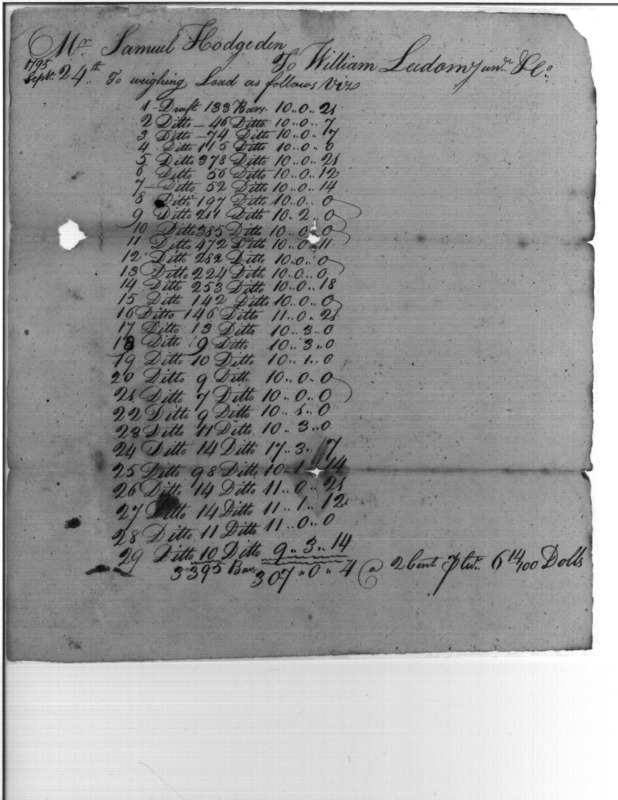 Mr Samuel Hodgeden
To William Leedom junr & Co.
1795
Septr 24th To weighing Lead as follows Viz
1 Draft 133 Bars 10..0..21
2 Ditto 46 Ditto 10..0..7
3 Ditto 74 Ditto 10..0..17
4 Ditto 115 Ditto 10..0..0
5 Ditto 378 Ditto 10..0..21
6 Ditto 56 Ditto 10..0..12
7 Ditto 52 Ditto 10..0..14
8 Ditto 197 Ditto 10..0..0
9 Ditto 211 Ditto 10..2..0
10 Ditto 385 Ditto 10..0..0
11 Ditto 472 Ditto 10..0..11
12 Ditto 282 Ditto 10..0..0
13 Ditto 224 Ditto 10..0..0
14 Ditto 253 Ditto 10..0..18
15 Ditto 142 Ditto 10..0..0
16 Ditto 146 Ditto 11..0..21
17 Ditto 13 Ditto 10..3..0
18 Ditto 9 Ditto 10..3..0
19 Ditto 10 Ditto 10..1..0
20 Ditto 9 Ditt 10..0..0
21 Ditto 7 Ditto 10..0..0
22 Ditto 9 Ditto 10..1..0
23 Ditto 11 Ditto 10..3..0
24 Ditto 14 Ditto 17..3..17
25 Ditto 98 Ditto 10..1..14
26 Ditto 14 Ditto 11..0..21
27 Ditto 14 Ditto 11..1..12
28 Ditto 11 Ditto 11..0..0
29 Ditto 10 Ditto 9..3..14
3395 Bars 307..0..4 @ 2 Cent 6 14/100 Dolls